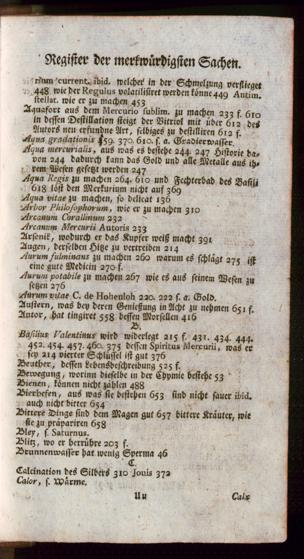 Register der merkwürdigsten Sachen.
rium current. ibid. welcher in der Schmelzung verflieget
448 wie der Regulus volatilisiret werden könne 449 Antim.
stellat. wie er zu machen 453
Aquafort aus dem Mercurio sublim. zu machen 233 f. 610
in dessen Destillation steigt der Vitriol mit über 612 des
Autors neu erfundne Art, selbiges zu destilliren 612 f.
Aqua gradationis 359. 370. 610 f. a. Gradierwasser.
Aqua mercurialis, aus was es bestehe 244. 247 Historie da-
von 244 dadurch kann das Gold und alle Metalle aus ih-
rem Wesen gesetzt werden 247
Aqua Regis zu machen 264. 610 und Fechterbad des Basili
618 löst den Merkurium nicht auf 369
Aqua vitae zu machen, so delicat 136
Arbor Philosophorum, wie er zu machen 310
Arcanum Corallinum 232
Arcanum Mercurii Autoris 233
Arsenik, wodurch er das Kupfer weiß macht 391
Augen, derselben Hitze zu vertreiben 214
Aurum fulminans zu machen 260 warum es schlägt 275 ist
eine gute Medicin 270 f.
Aurum potabile zu machen 267 wie es aus seinem Wesen zu
setzen 276
Aurum vitae C. de Hohenloh 220. 222 f. a. Gold.
Austern, was bey deren Geniessung in Acht zu nehmen 651 f.
Autor, hat tingiret 558 dessen Morsellen 416
B.
Basilius Valentinus wird widerlegt 215 f. 431. 434. 444.
452. 454. 457. 460. 375 dessen Spiritus Mercurii, was er
sey 214 vierter Schlüssel ist gut 376
Beuther, dessen Lebensbeschreibung 525 f.
Bewegung, worinn dieselbe in der Chymie bestehe 53
Bienen, können nicht zählen 488
Bierhefen, aus was sie bestehen 653 sind nicht sauer ibid.
auch nicht bitter 654
Bittere Dinge sind dem Magen gut 657 bittere Kräuter, wie
sie zu präpariren 658
Bley, s. Saturnus.
Blitz, wo er herrühre 203 f.
Brunnenwasser hat wenig Sperma 46
C.
Calcination des Silbers 310 Jouis 372
Calor, s. Wärme.
Uu
Calx